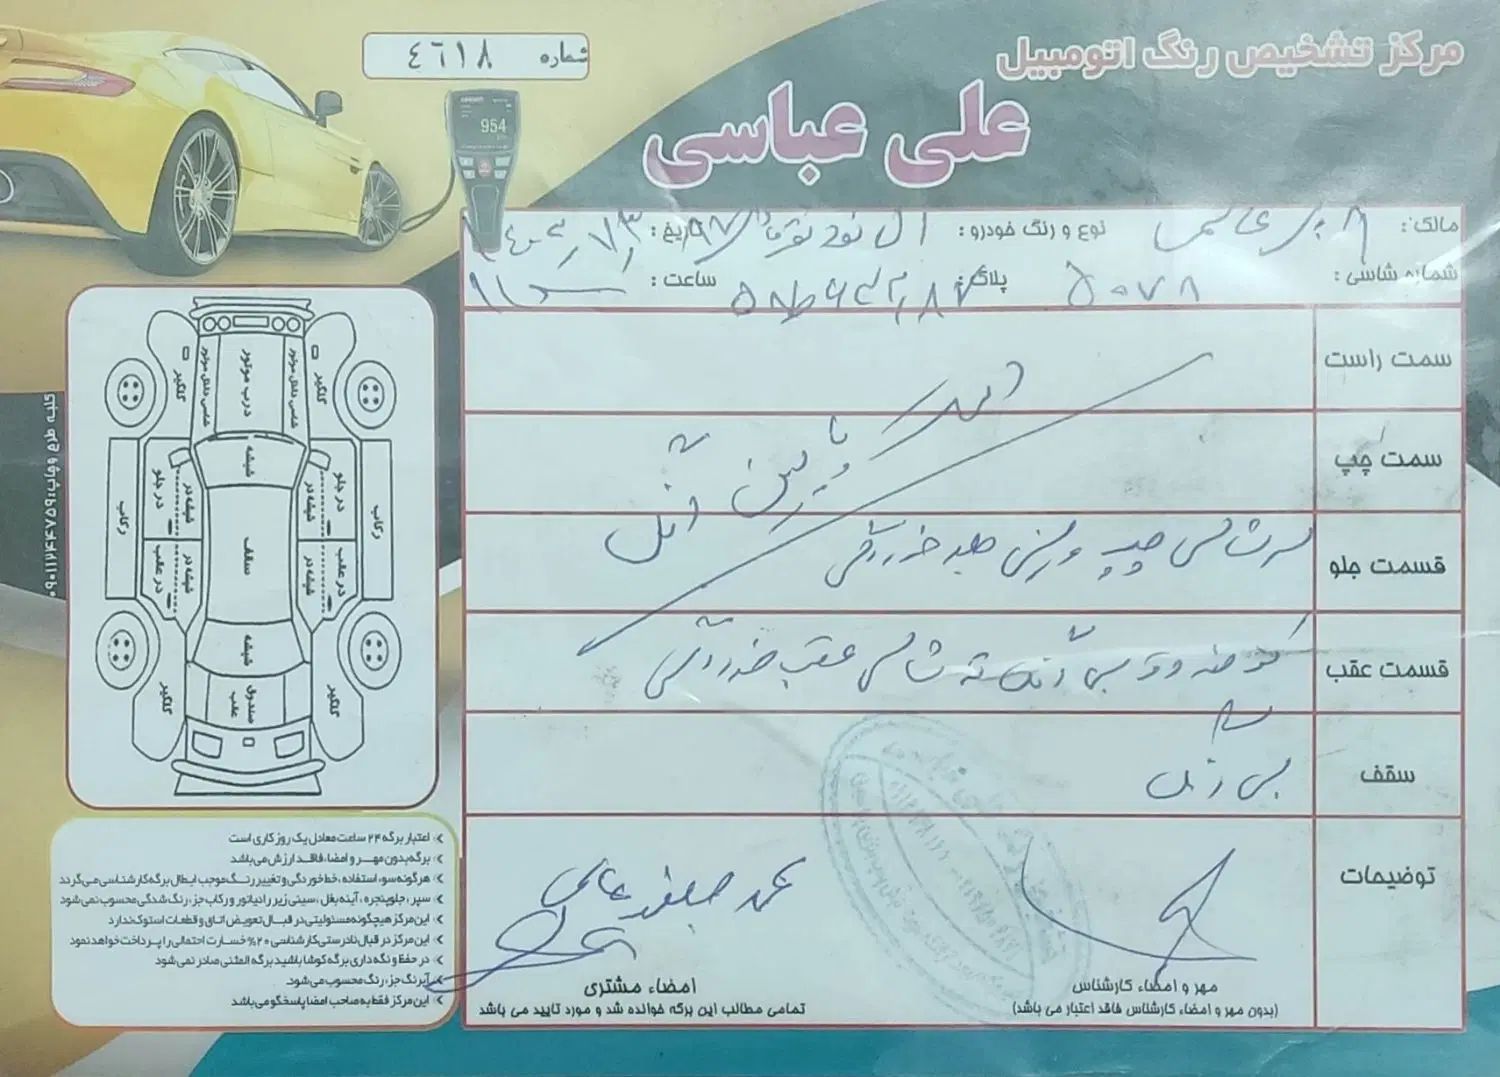 مرکز تشخیص رنگ اتومبیل
علی عباسی
شماره ٤٦١٨
954
مالک:
نوع و رنگ خودرو: ال نود نقره‌ای ۹۷
تاریخ:
شماره شاسی: ۵۰۷۸
پلاک:
ساعت:
سمت راست
سمت چپ
پایین
قسمت جلو سرشاسی چپ جلو خوردگی
قسمت عقب صندوق بی رنگ ته شاسی عقب خوردگی
سقف بی رنگ
توضیحات
مهر و امضاء کارشناس
(بدون مهر و امضاء کارشناس فاقد اعتبار می باشد)
امضاء مشتری
تمامی مطالب این برگه خوانده شد و مورد تایید می باشد
گلگیر
شاسی داخل موتور
درب موتور
شاسی داخل موتور
گلگیر
شیشه
رکاب
در جلو
شیشه در
سقف
شیشه در
در جلو
رکاب
در عقب
شیشه در
شیشه در
در عقب
شیشه
گلگیر
صندوق عقب
گلگیر
اعتبار برگه ۲۴ ساعت معادل یک روز کاری است
برگه بدون مهر و امضا، فاقد ارزش می باشد
هرگونه سوء استفاده، خط خوردگی و تغییر رنگ موجب ابطال برگه کارشناسی می گردد
سپر، جلوپنجره، آینه بغل، سینی زیر رادیاتور و رکاب جزء رنگ شدگی محسوب نمی شود
این مرکز هیچگونه مسئولیتی در قبال تعویض اتاق و قطعات استوک ندارد
این مرکز در قبال نادرستی کارشناسی ۲۰% خسارت احتمالی را پرداخت خواهد نمود
در حفظ و نگه داری برگه کوشا باشید برگه المثنی صادر نمی شود
آبرنگ جزء رنگ محسوب می شود.
این مرکز فقط به صاحب امضا پاسخگو می باشد
کلبه طرح و چاپ: ۰۹۰۱۱۲۴۴۷۵۹